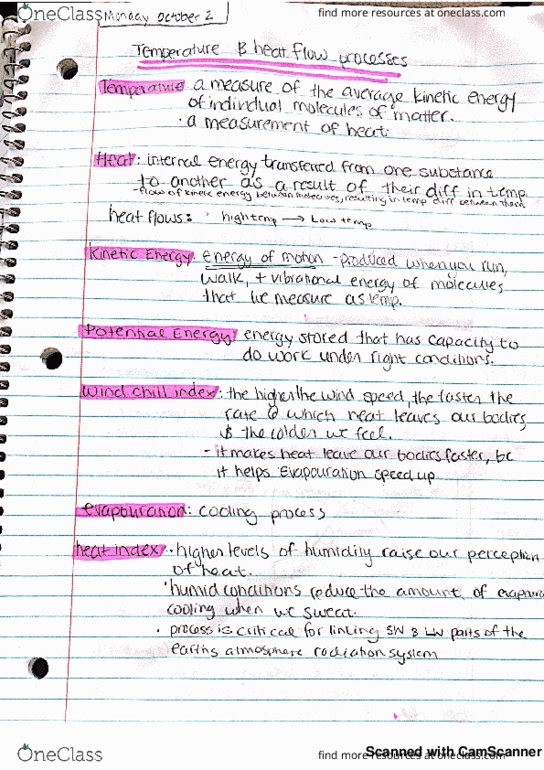 OneClass
Monday October 2
find more resources at oneclass.com
Temperature & heat flow processes
Temperature a measure of the average kinetic energy
of individual molecules of matter.
· a measurement of heat.
Heat: internal energy transferred from one substance
to another as a result of their diff in temp
-flow of kinetic energy between molecules, resulting in temp diff between them
heat flows: · high temp → Low temp
Kinetic Energy energy of motion - produced when you run,
walk, + vibrational energy of molecules
that we measure as temp.
Potential Energy energy stored that has capacity to
do work under right conditions.
Wind chill index: the higher the wind speed, the faster the
rate @ which heat leaves our bodies
& the colder we feel.
- it makes heat leave our bodies faster, bc
it helps evapouration speed up
evapouration: cooling process
heat index · higher levels of humidity raise our perception
of heat.
· humid conditions reduce the amount of evapour
cooling when we sweat.
· process is critical for linking SW & LW parts of the
earths atmosphere radiation system
OneClass
find more resources at oneclass.com
Scanned with CamScanner